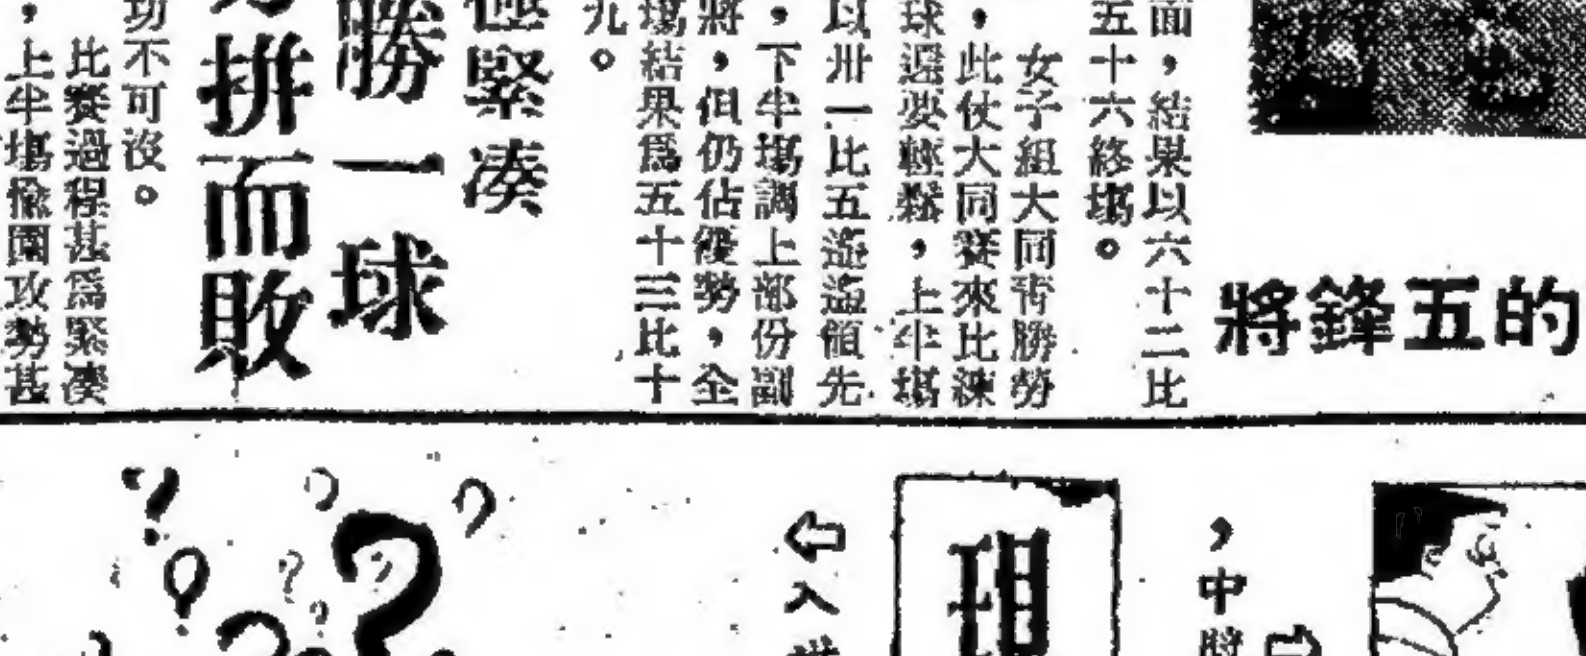 將鋒五的
面，結果以六十二比
五十六終場。
女子組大同靑勝勞
，此仗大同賽來比練
球還要輕鬆，上半場
以卅一比五遙遙領先
，下半場調上部份副
將，但仍佔優勢，全
場結果爲五十三比十
九。
極緊凑
勝一球
拼而敗
功不可沒。
比賽過程甚爲緊凑
，上半場儉園攻勢甚
，中將
入